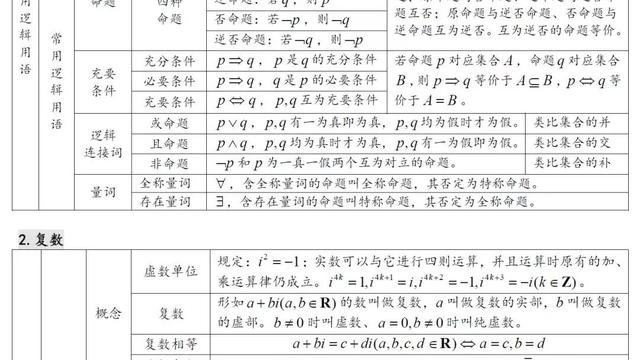 用逻辑用语
常用逻辑用语
命题
四种命题
否命题：若¬p，则¬q
逆否命题：若¬q，则¬p
题互否；原命题与逆否命题、否命题与
逆命题互为逆否。互为逆否的命题等价。
充要条件
充分条件 p⇒q，p 是 q 的充分条件
必要条件 p⇒q，q 是 p 的必要条件
充要条件 p⇔q，p,q 互为充要条件
若命题 p 对应集合 A，命题 q 对应集合
B，则 p⇒q 等价于 A⊆B，p⇔q 等
价于 A=B。
逻辑连接词
或命题 p∨q，p,q 有一为真即为真，p,q 均为假时才为假。 类比集合的并
且命题 p∧q，p,q 均为真时才为真，p,q 有一为假即为假。 类比集合的交
非命题 ¬p 和 p 为一真一假两个互为对立的命题。 类比集合的补
量词
全称量词 ∀，含全称量词的命题叫全称命题，其否定为特称命题。
存在量词 ∃，含存在量词的命题叫特称命题，其否定为全称命题。
2.复数
概念
虚数单位 规定：i²=-1；实数可以与它进行四则运算，并且运算时原有的加、
乘运算律仍成立。i^{4k}=1,i^{4k+1}=i,i^{4k+2}=-1,i^{4k+3}=-i(k∈Z)。
复数 形如 a+bi(a,b∈R) 的数叫做复数，a 叫做复数的实部，b 叫做复数
的虚部。b≠0 时叫虚数、a=0,b≠0 时叫纯虚数。
复数相等 a+bi=c+di(a,b,c,d∈R)⇔a=c,b=d